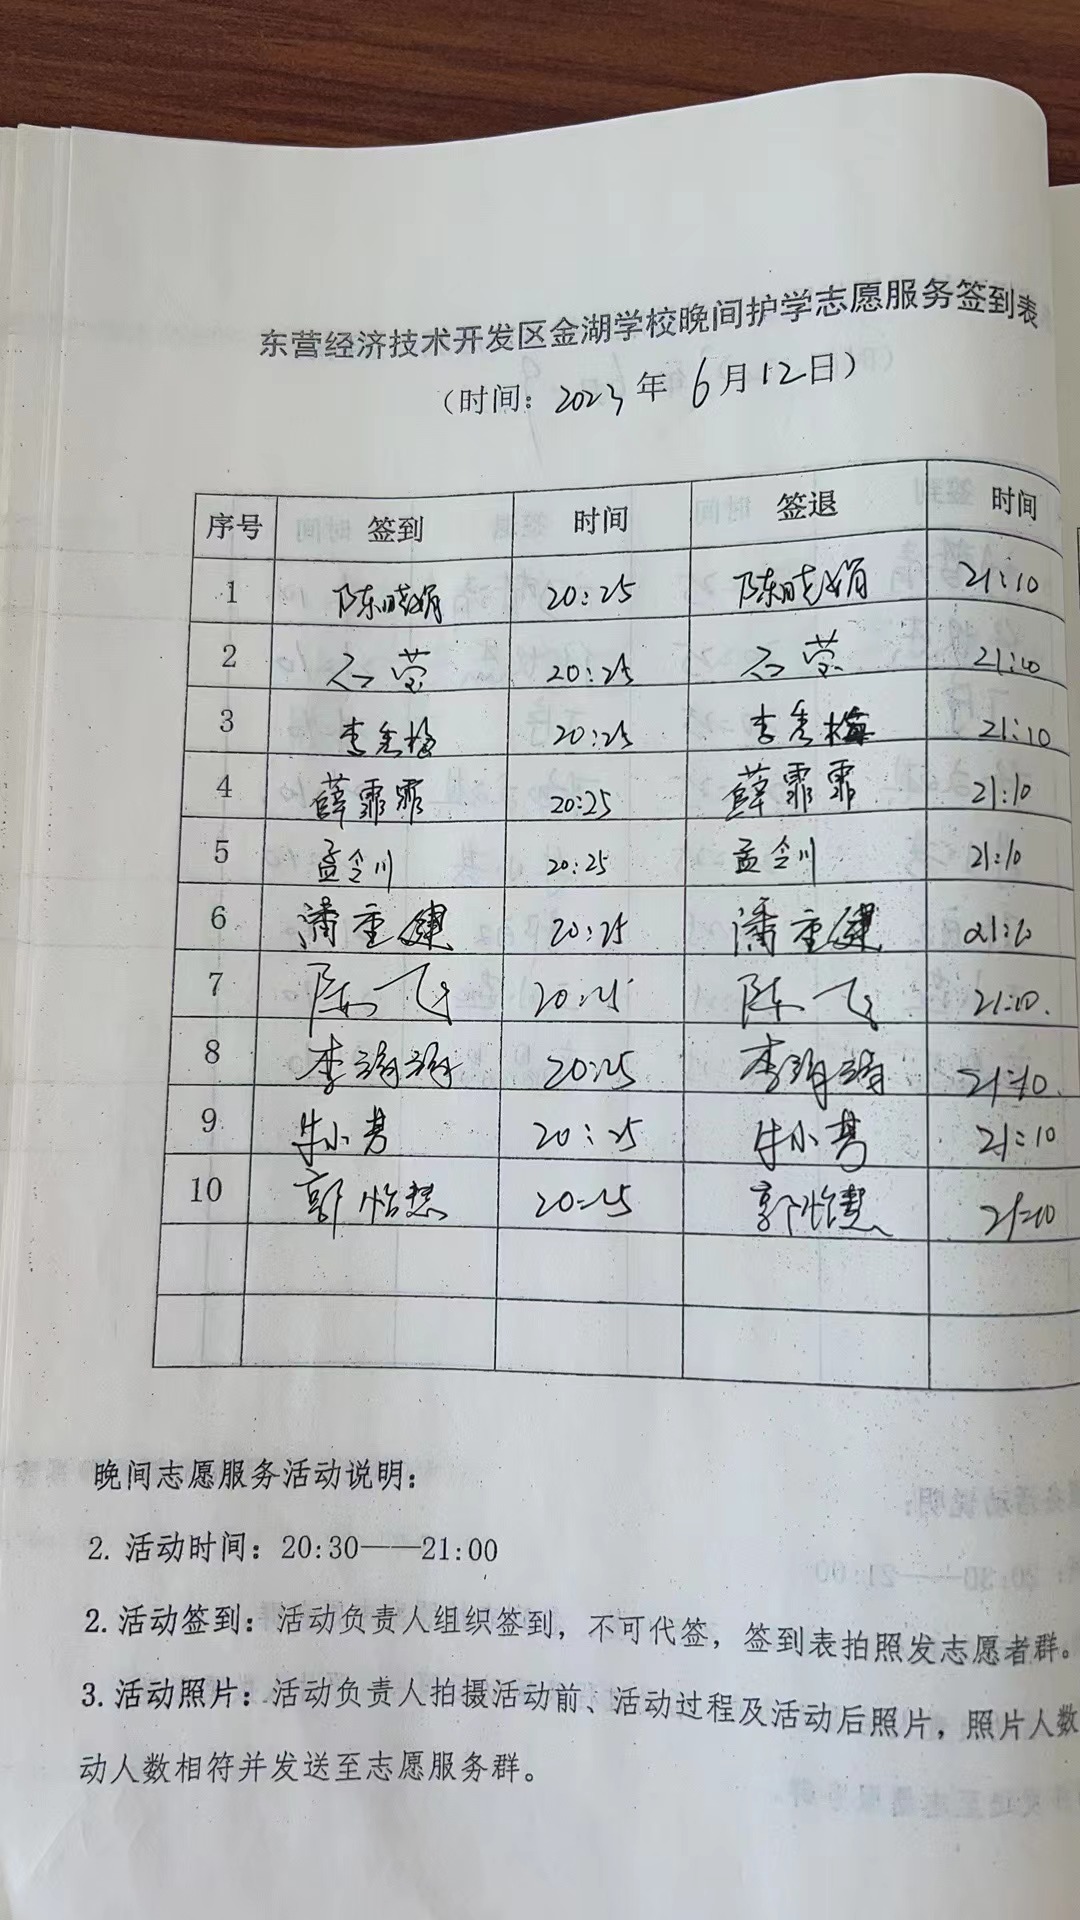 东营经济技术开发区金湖学校晚间护学志愿服务签到表
（时间：2023年6月12日）
序号 签到 时间 签退 时间
1 陈晓娟 20:25 陈晓娟 21:10
2 石莹 20:25 石莹 21:10
3 李秀梅 20:25 李秀梅 21:10
4 薛霏霏 20:25 薛霏霏 21:10
5 孟令川 20:25 孟令川 21:10
6 潘重健 20:25 潘重健 21:10
7 陈飞 20:25 陈飞 21:10.
8 李 20:25 李 21:10.
9 牛小 20:25 牛小 21:10
10 郭怡慧 20:25 郭怡慧 21:10
晚间志愿服务活动说明：
2. 活动时间：20:30——21:00
2. 活动签到：活动负责人组织签到，不可代签，签到表拍照发志愿者群。
3. 活动照片：活动负责人拍摄活动前、活动过程及活动后照片，照片人数
动人数相符并发送至志愿服务群。